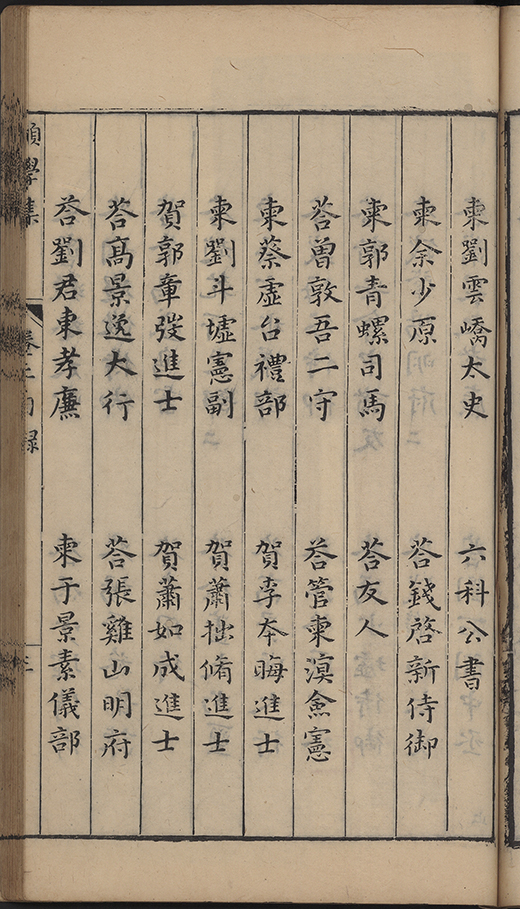 柬劉雲嶠太史
六科公書
柬余少原
荅錢啓新侍御
柬郭青螺司馬
荅友人
荅曾敦吾二守
荅管東溟僉憲
柬蔡虛台禮部
賀李夲晦進士
柬劉斗墟憲副
賀蕭拙脩進士
賀郭章弢進士
賀蕭如成進士
荅高景逸大行
荅張雞山明府
荅劉君東孝廉
柬于景素儀部
學集
目録
三